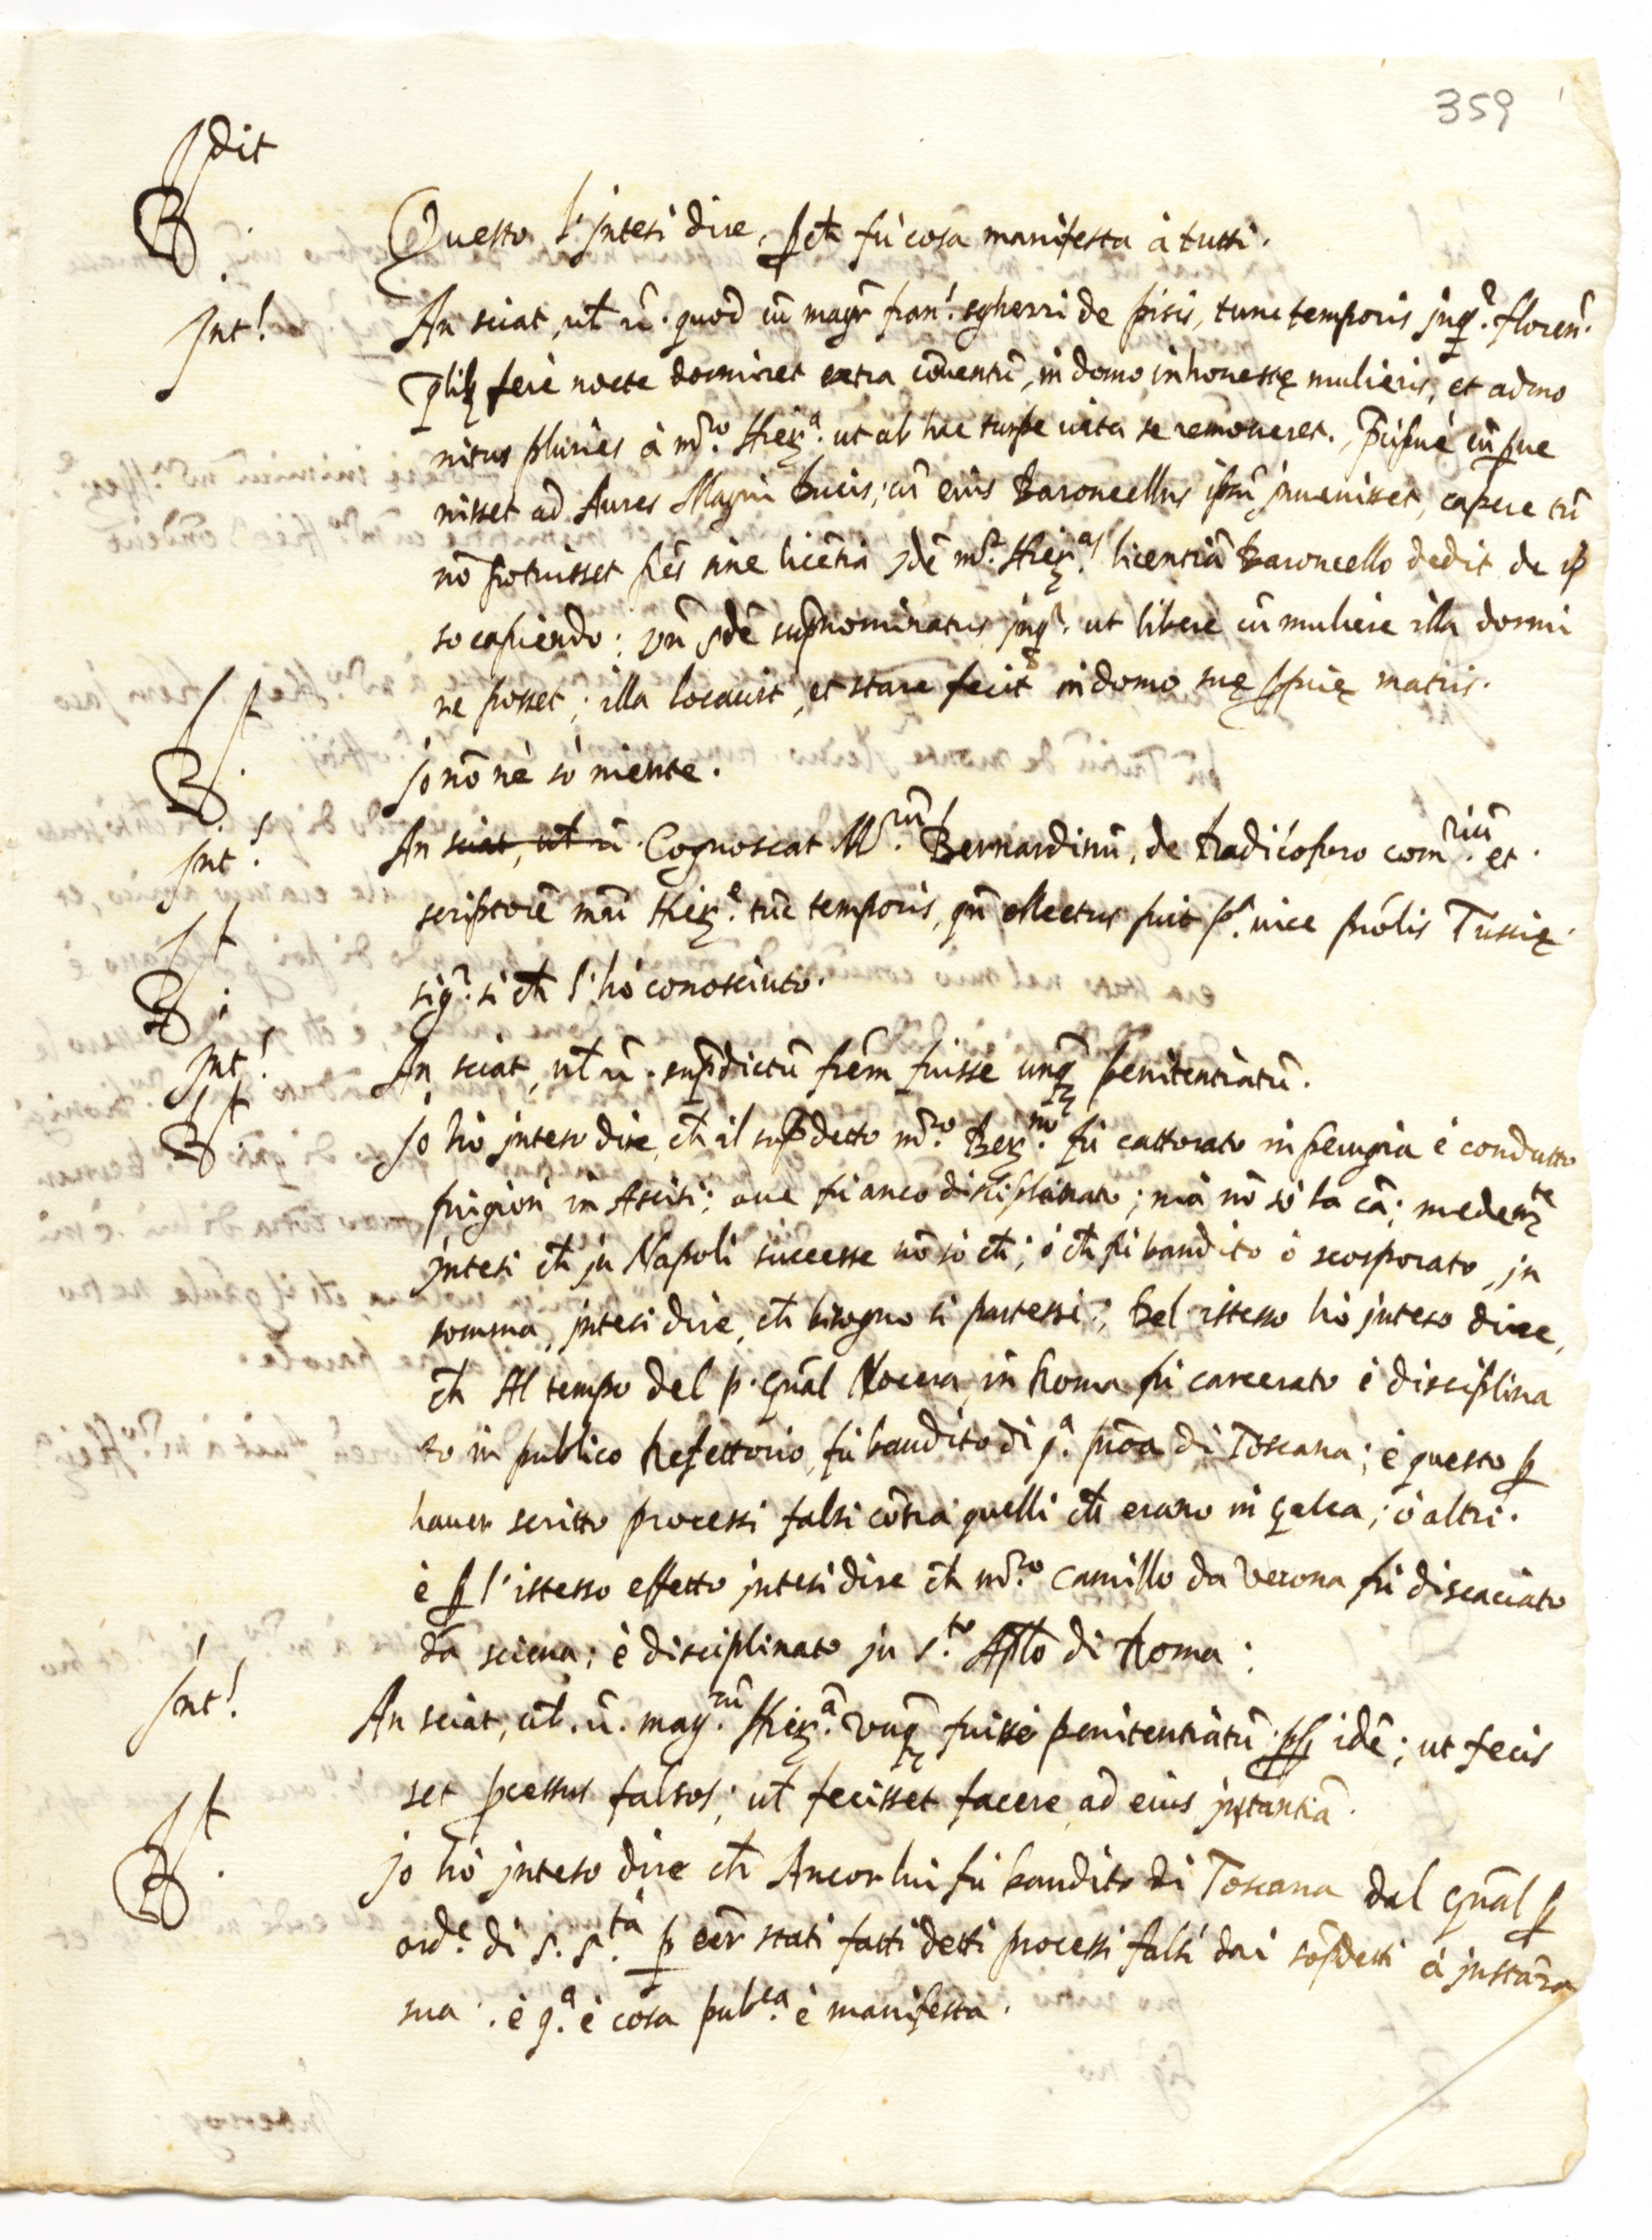 359
dit
R. Questo l'intesi dire, ꝑch fù cosa manifesta à tutti.
Int.s An sciat, ul̄ ū. quod cū magr̄ fran.s sgherri de pisis, tunc temporis jnq.r floren̄.
qlibꝫ ferè nocte dormiret extra cōuentū, in domo inhonestę mulieris, et admo
nitus pluries à mr̄o. Hier.a ut ab hac turpe uita se remoueret.
nisset ad Aures Magni Ducis; cū eius Baroncellus ipsū jnuenisset, capere tū
nō potuisset frēs sine licētia dē mr̄. Hier.a licentiā Baroncello dedit de ip
so capiendo: un̄ dē supnominatus jnq.r ut libere cū muliere illa dormi
re posset; illa locauit, et stare fecit in domo suę ꝓprię matris.
R. jo nō nè sò niente.
jnt.s An sciat, ul̄ ū. Cognoscat M.rum Bernardinū, de Radicoforo com.rium et
scriptorē mr̄i Hier.e tūc temporis, qn̄ ellectus fuit p.a uice prōlis Tuscię.
R. sig.r si ch l'hò conosciuto.
jnt.s An sciat, ul̄ ū. supdictū frēm fuisse unq̄ penitentiatū.
R. jo hò jnteso dire, ch il supdetto mr̄o. Ber.no fù catturato in perugia è condutto
prigion in Ascisi: oue fù anco disciplinato; mà nō sò la cā; medem.te
jntesi ch jn Napoli successe nō sò ch; ò ch fù bandito ò scorporato, jn
somma, jntesi dire, ch bisogno si partessi: Del istesso hò jnteso dire,
ch Al tempo del p. Gnāl Nocera, in Roma fù carcerato è disciplina
to in publico Refettorio, fù bandito di q.a prōa di Toscana; è questo ꝑ
hauer scritto processi falsi cōtra quelli ch erano in galea; ò altri.
è ꝑ l'istesso effetto jntesi dire ch mr̄o. Camillo da Verona fù discaciato
da sciena; è disciplinato jn s.to Apl̄o di Roma:
jnt.s An sciat, ul̄. ū. mag.rum Hier.ā unq̄ fuisse penitentiatū idē; ut fecis
set ꝓcessus falsos; ul̄ fecisset facere ad eius jnstantiā.
R. jo hò jnteso dire ch Ancor lui fù bandito di Toscana dal Gnāl ꝑ
ord.e di s. s.tà ꝑ eēr stati fatti detti processi falsi dai sōpdetti à jnstāza
sua. è q.a è cosa pub.ca è manifesta.